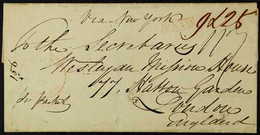 Via New York
To the Secretaries
Wesleyan Mission House
77, Hatton Garden
London
England